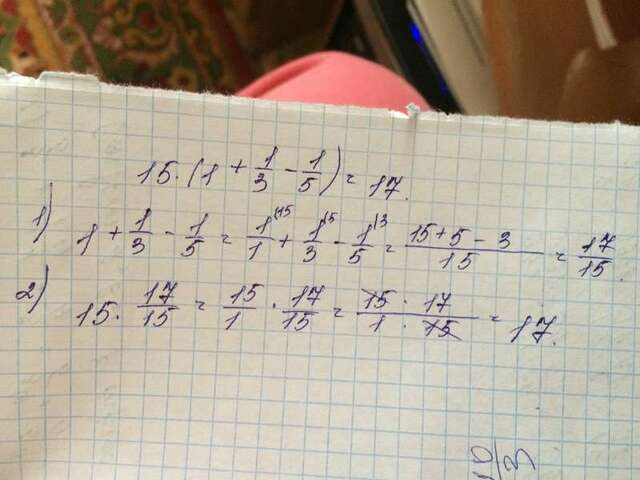 15 · (1 + 1/3 - 1/5) = 17.
1) 1 + 1/3 - 1/5 = 1^{15}/1 + 1^{5}/3 - 1^{3}/5 = (15 + 5 - 3)/15 = 17/15
2) 15 · 17/15 = 15/1 · 17/15 = (15 · 17)/(1 · 15) = 17.